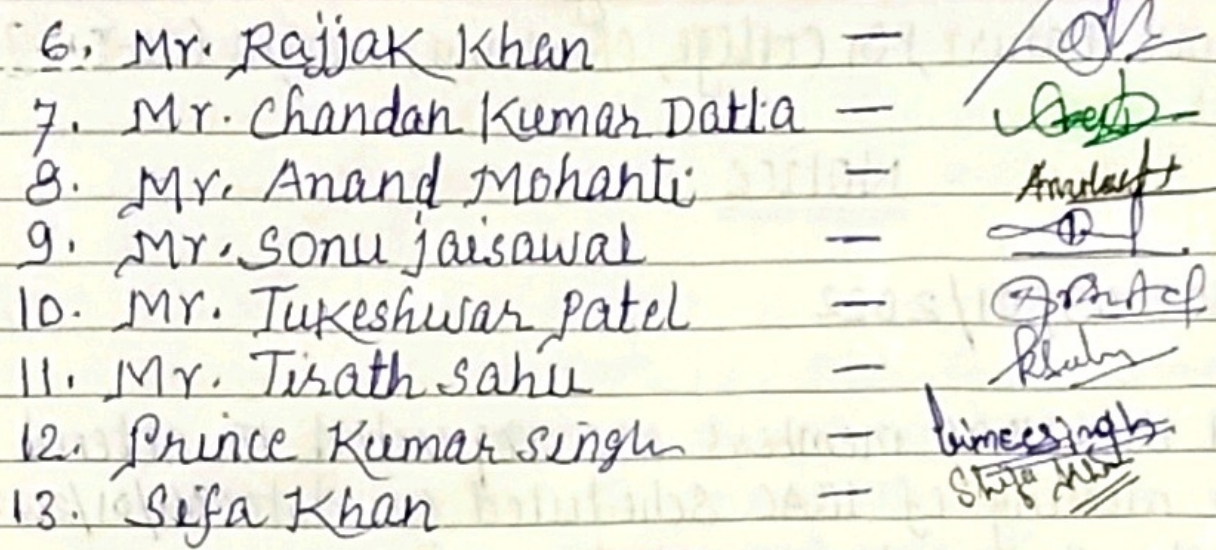 6. Mr. Rajjak Khan —
7. Mr. Chandan Kumar Datta —
8. Mr. Anand Mohanti —
9. Mr. Sonu jaisawal —
10. Mr. Tukeshwar patel —
11. Mr. Tirath sahu —
12. Prince Kumar singh —
13. Sifa Khan — Shifa Khan